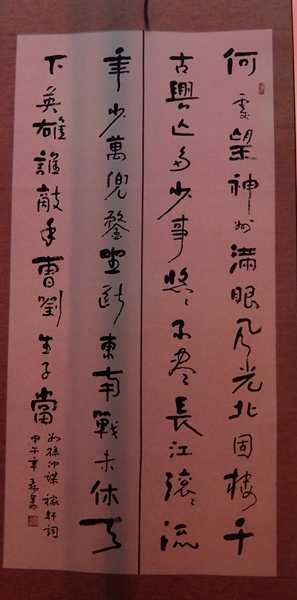 何處望神州滿眼风光北固樓千
古興亡多少事悠〻不盡長江滚〻流
年少萬兜鍪坐斷東南戰未休天
下英雄誰敵手曹劉生子當
如孫仲謀 稼軒詞
甲午年